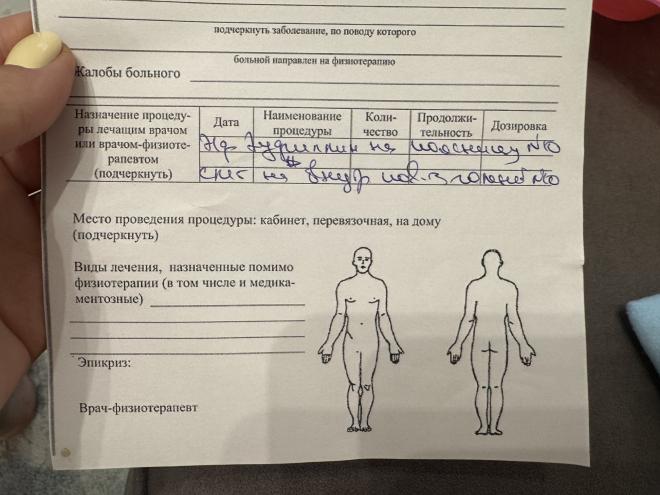 подчеркнуть заболевание, по поводу которого
больной направлен на физиотерапию
Жалобы больного
Назначение процеду-
ры лечащим врачом
или врачом-физиоте-
рапевтом
(подчеркнуть)
Дата
Наименование
процедуры
Коли-
чество
Продолжи-
тельность
Дозировка
Эф Эуфиллин на поясницу №10
смт на внутр пов.
Место проведения процедуры: кабинет, перевязочная, на дому
(подчеркнуть)
Виды лечения, назначенные помимо
физиотерапии (в том числе и медика-
ментозные)
Эпикриз:
Врач-физиотерапевт